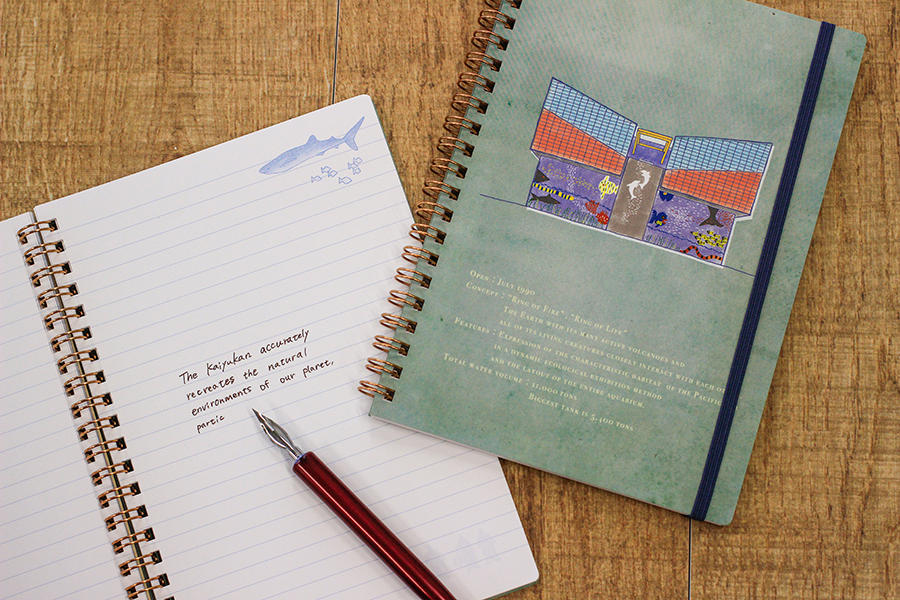 The Kaiyukan accurately
recreates the natural
environments of our planet,
partic
OPEN : JULY 1990
CONCEPT : "RING OF FIRE", "RING OF LIFE"
THE EARTH WITH ITS MANY ACTIVE VOLCANOES AND
ALL OF ITS LIVING CREATURES CLOSELY INTERACT WITH EACH
FEATURES : EXPRESSION OF THE CHARACTERISTIC HABITAT OF THE PACIFIC
IN A DYNAMIC ECOLOGICAL EXHIBITION METHOD
AND THE LAYOUT OF THE ENTIRE AQUARIUM.
TOTAL WATER VOLUME : 11,000 TONS
BIGGEST TANK IS 5,400 TONS